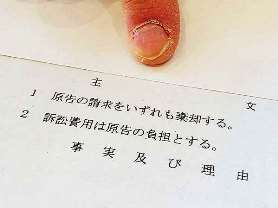 主文
1 原告の請求をいずれも棄却する。
2 訴訟費用は原告の負担とする。
事実及び理由